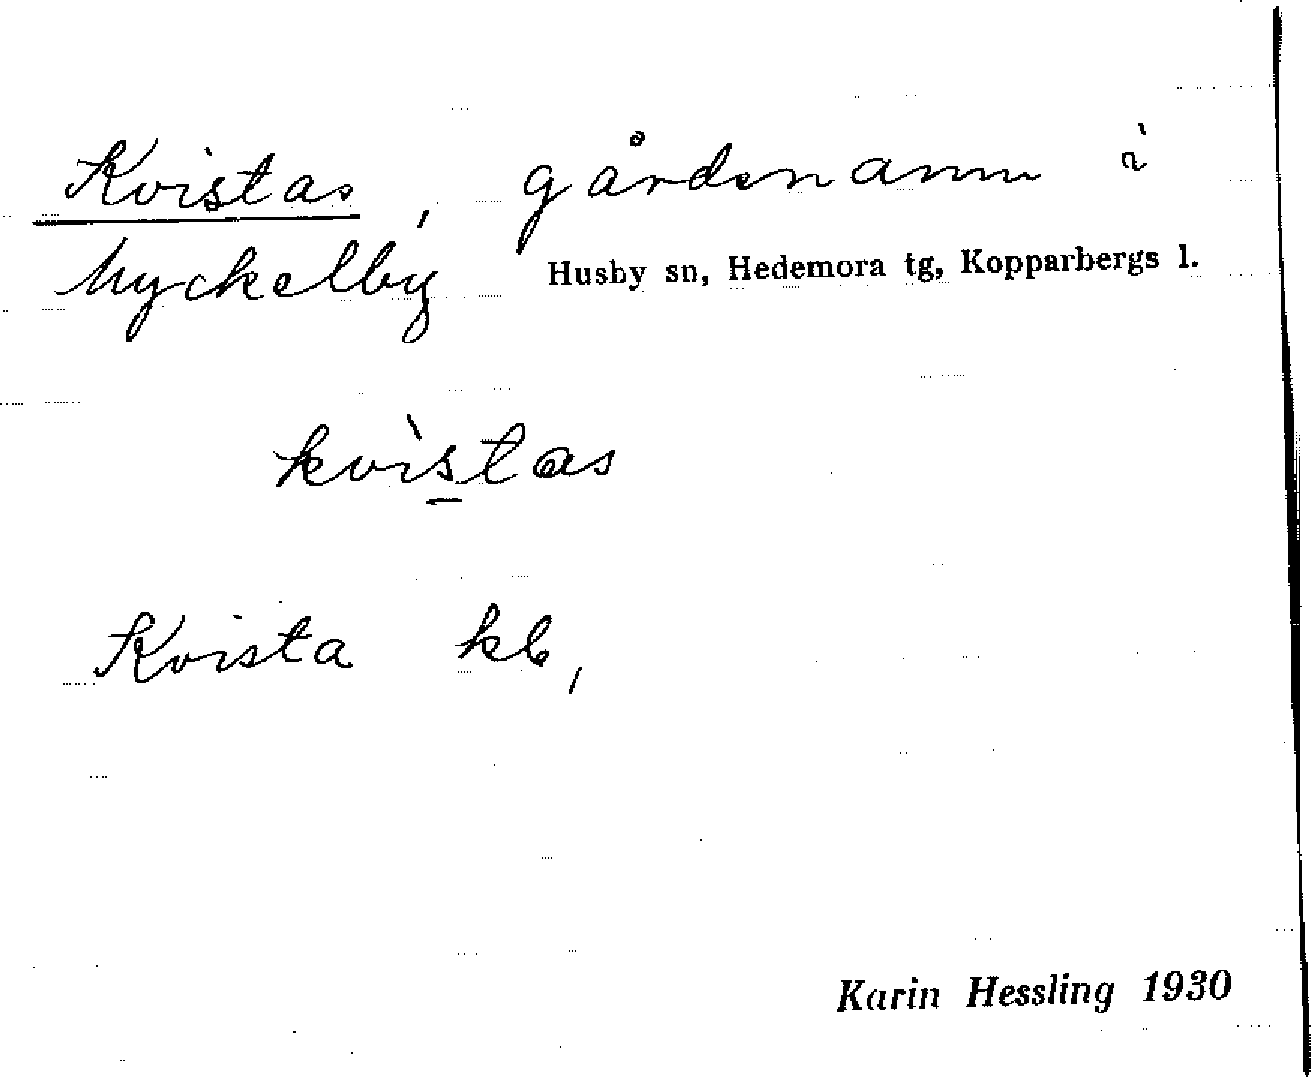 Kvistas, gårdsnamn i
Myckelby Husby sn, Hedemora tg, Kopparbergs l.
kvìstas
Kvista kb,
Karin Hessling 1930